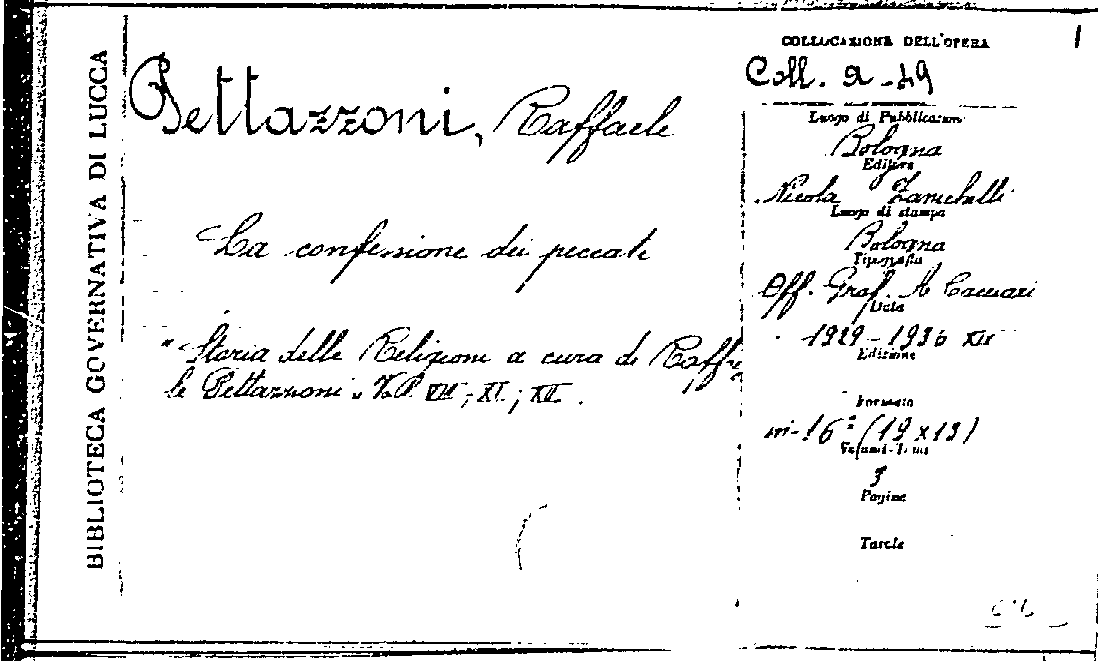 BIBLIOTECA GOVERNATIVA DI LUCCA
Pettazzoni, Raffaele
La confessione dei peccati
"Storia delle Religioni a cura di Raffae
le Pettazzoni" Vol. VIII; XI; XII.
1
COLLOCAZIONE DELL'OPERA
Coll. a-49
Luogo di Pubblicazione
Bologna
Editore
Nicola Zanichelli
Luogo di stampa
Bologna
Tipografia
Off. Graf. A Cacciari
Data
1929-1936 XIV
Edizione
Formato
in-16° (19x13)
Volumi-Tomi
3
Pagine
Tavole